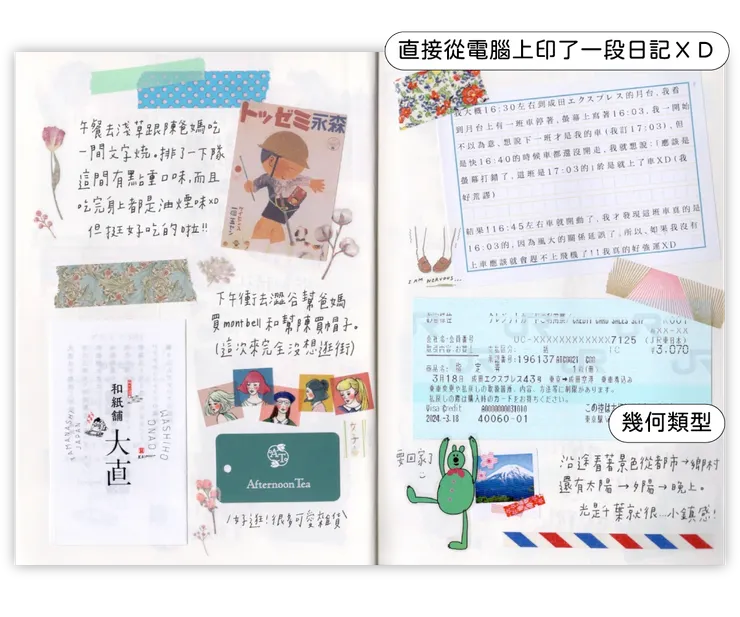 直接從電腦上印了一段日記XD
午餐去淺草跟陳爸媽吃
一間文字燒。排了一下隊
這間有點重口味,而且
吃完身上都是油煙味XD
但挺好吃的啦!!
トッゼミ永森
下午衝去澀谷幫爸媽
買montbell和幫陳買帽子。
(這次來完全沒想逛街)
和紙舗
大直
YAMANASHI
JAPAN
Afternoon Tea
好逛!很多可愛雜貨
我大概16:30左右到成田エクスプレス的月台,我看
到月台上有一班車停著,螢幕上寫著16:03,我一開始
不以為意,想說下一班才是我的車(我訂17:03),但
是快16:40的時候車都還沒開走,我就想說:(應該是
螢幕打錯了,這班是17:03的)於是就上了車XD(我
好荒謬)
結果!16:45左右車就開動了,我才發現這班車真的是
16:03的,因為風大的關係延誤了,所以、如果我沒有
上車應該就會趕不上飛機了!!我真的好強運XD
I AM NERVOUS...
会社名・会員番号 UC-XXXXXXXXXXXX7125 (JR東日本)
¥3,070
3月18日 成田エクスプレス43号 東京→成田空港 乗車券込み
払戻しの際は購入時のカードをお持ちください。
Visa Credit A0000000031010
2024.-3.18 40060-01
幾何類型
要回家了
沿途看著景色從都市→鄉村
還有太陽→夕陽→晚上。
光是千葉就很...小鎮感!